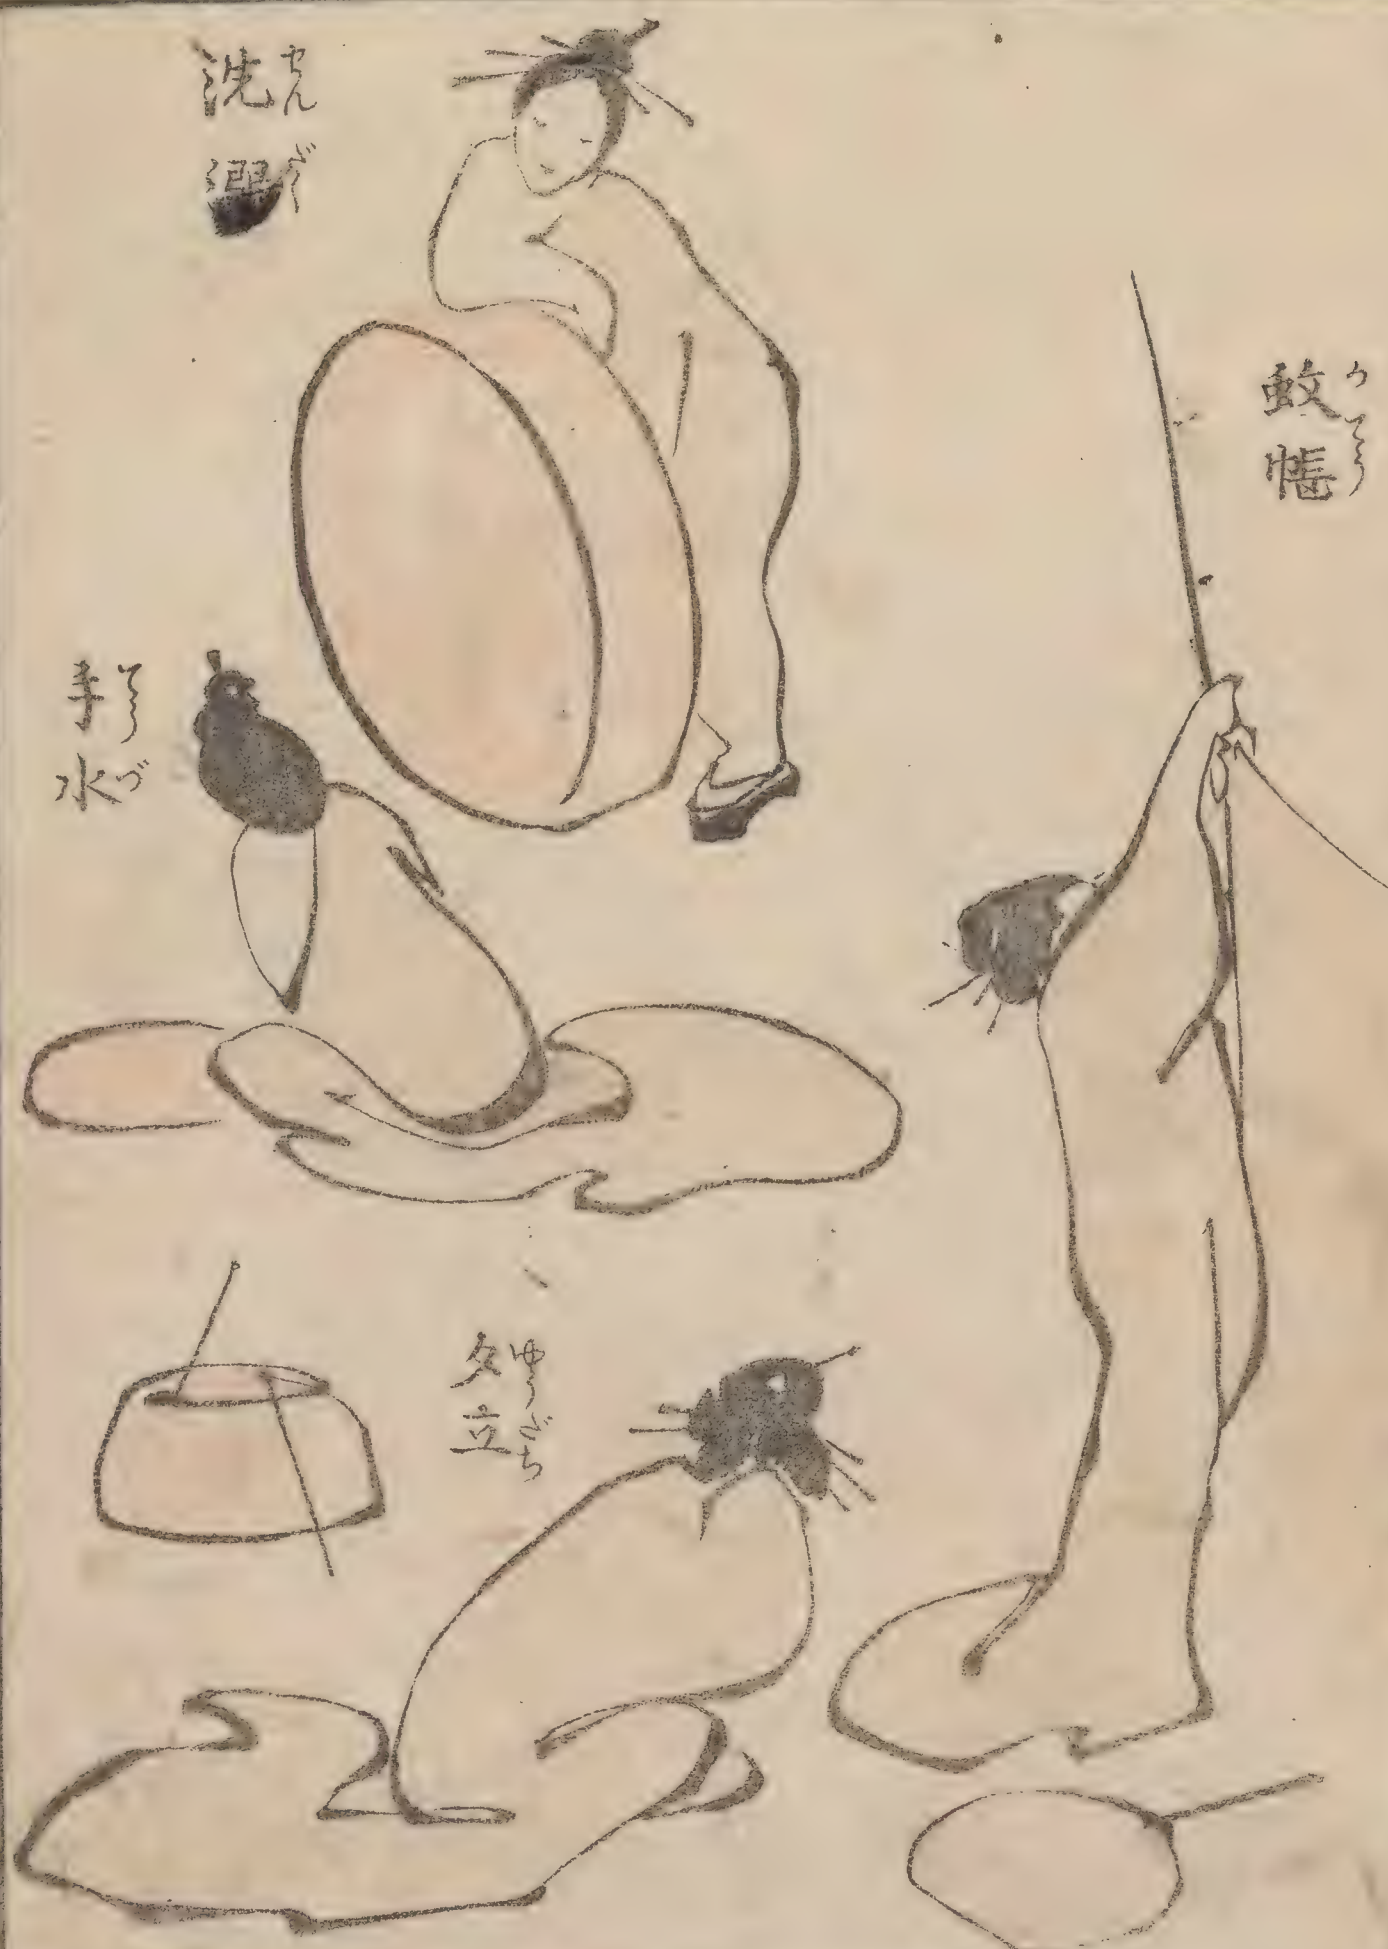 蚊帳
かてう
洗濯
せんだく
手水
てうづ
夕立
ゆうだち